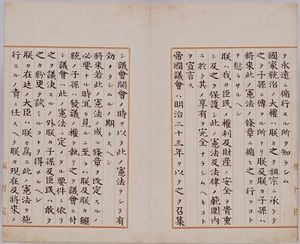 ヲ永遠ニ循行スル所ヲ知ラシム
國家統治ノ大權ハ朕カ之ヲ祖宗ニ承ケテ
之ヲ子孫ニ傳フル所ナリ朕及朕カ子孫ハ
將來此ノ憲法ノ條章ニ循ヒ之ヲ行フコト
ヲ愆ラサルヘシ
朕ハ我カ臣民ノ權利及財産ノ安全ヲ貴重
シ及之ヲ保護シ此ノ憲法及法律ノ範圍内
ニ於テ其ノ享有ヲ完全ナラシムヘキコト
ヲ宣言ス
帝國議會ハ明治二十三年ヲ以テ之ヲ召集
シ議會開會ノ時ヲ以テ此ノ憲法ヲシテ有
効ナラシムルノ期トスヘシ
將來若此ノ憲法ノ或ル條章ヲ改定スルノ
必要ナル時宜ヲ見ルニ至ラハ朕及朕カ繼
統ノ子孫ハ發議ノ權ヲ執リ之ヲ議會ニ付
シ議會ハ此ノ憲法ニ定メタル要件ニ依リ
之ヲ議決スルノ外朕カ子孫及臣民ハ敢テ
之カ紛更ヲ試ミルコトヲ得サルヘシ
朕カ在廷ノ大臣ハ朕カ爲ニ此ノ憲法ヲ施
行スルノ責ニ任スヘク朕カ現在及將來ノ